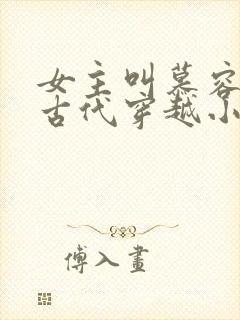 女主叫慕容
古代穿越小
傅入画